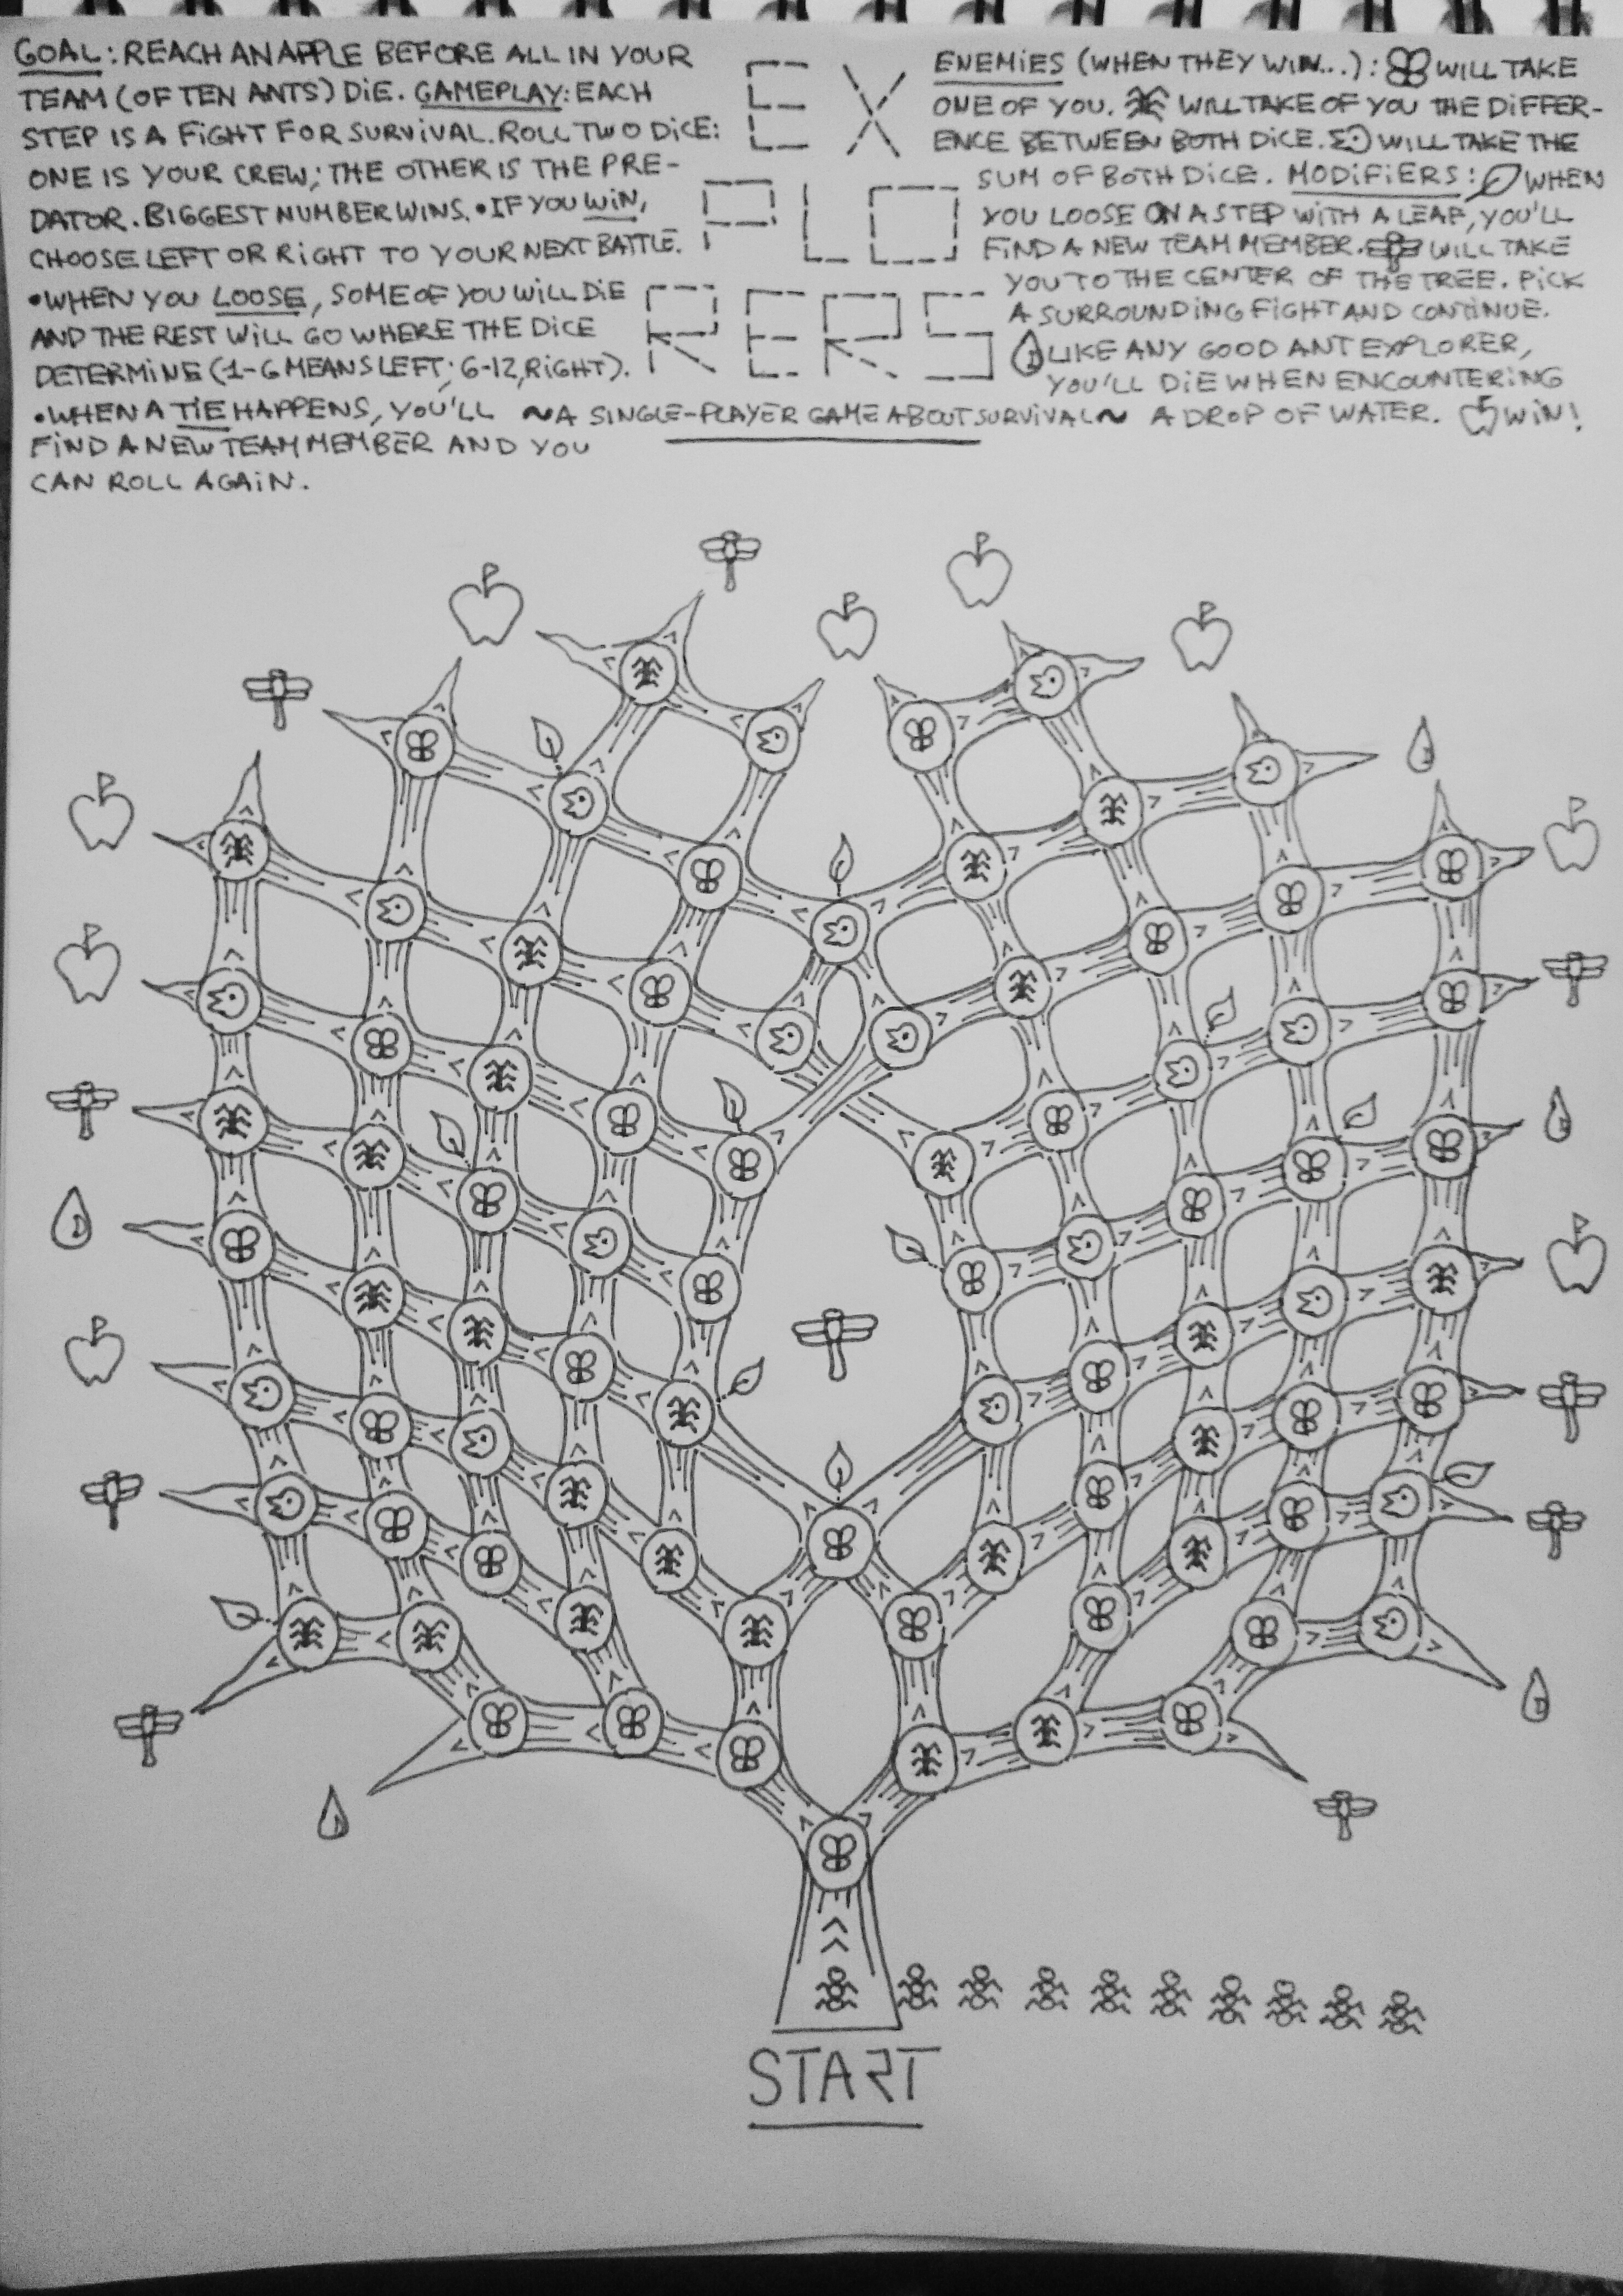 GOAL: REACH AN APPLE BEFORE ALL IN YOUR
TEAM (OF TEN ANTS) DIE. GAMEPLAY: EACH
STEP IS A FIGHT FOR SURVIVAL. ROLL TWO DICE:
ONE IS YOUR CREW; THE OTHER IS THE PRE-
DATOR. BIGGEST NUMBER WINS. • IF YOU WIN,
CHOOSE LEFT OR RIGHT TO YOUR NEXT BATTLE.
• WHEN YOU LOOSE, SOME OF YOU WILL DIE
AND THE REST WILL GO WHERE THE DICE
DETERMINE (1-6 MEANS LEFT; 6-12, RIGHT).
• WHEN A TIE HAPPENS, YOU'LL
FIND A NEW TEAM MEMBER AND YOU
CAN ROLL AGAIN.
EX
PLO
RERS
~A SINGLE-PLAYER GAME ABOUT SURVIVAL~
ENEMIES (WHEN THEY WIN...): WILL TAKE
ONE OF YOU. WILL TAKE OF YOU THE DIFFER-
ENCE BETWEEN BOTH DICE. WILL TAKE THE
SUM OF BOTH DICE. MODIFIERS: WHEN
YOU LOOSE ON A STEP WITH A LEAF, YOU'LL
FIND A NEW TEAM MEMBER. WILL TAKE
YOU TO THE CENTER OF THE TREE. PICK
A SURROUNDING FIGHT AND CONTINUE.
LIKE ANY GOOD ANT EXPLORER,
YOU'LL DIE WHEN ENCOUNTERING
A DROP OF WATER. WIN!
START